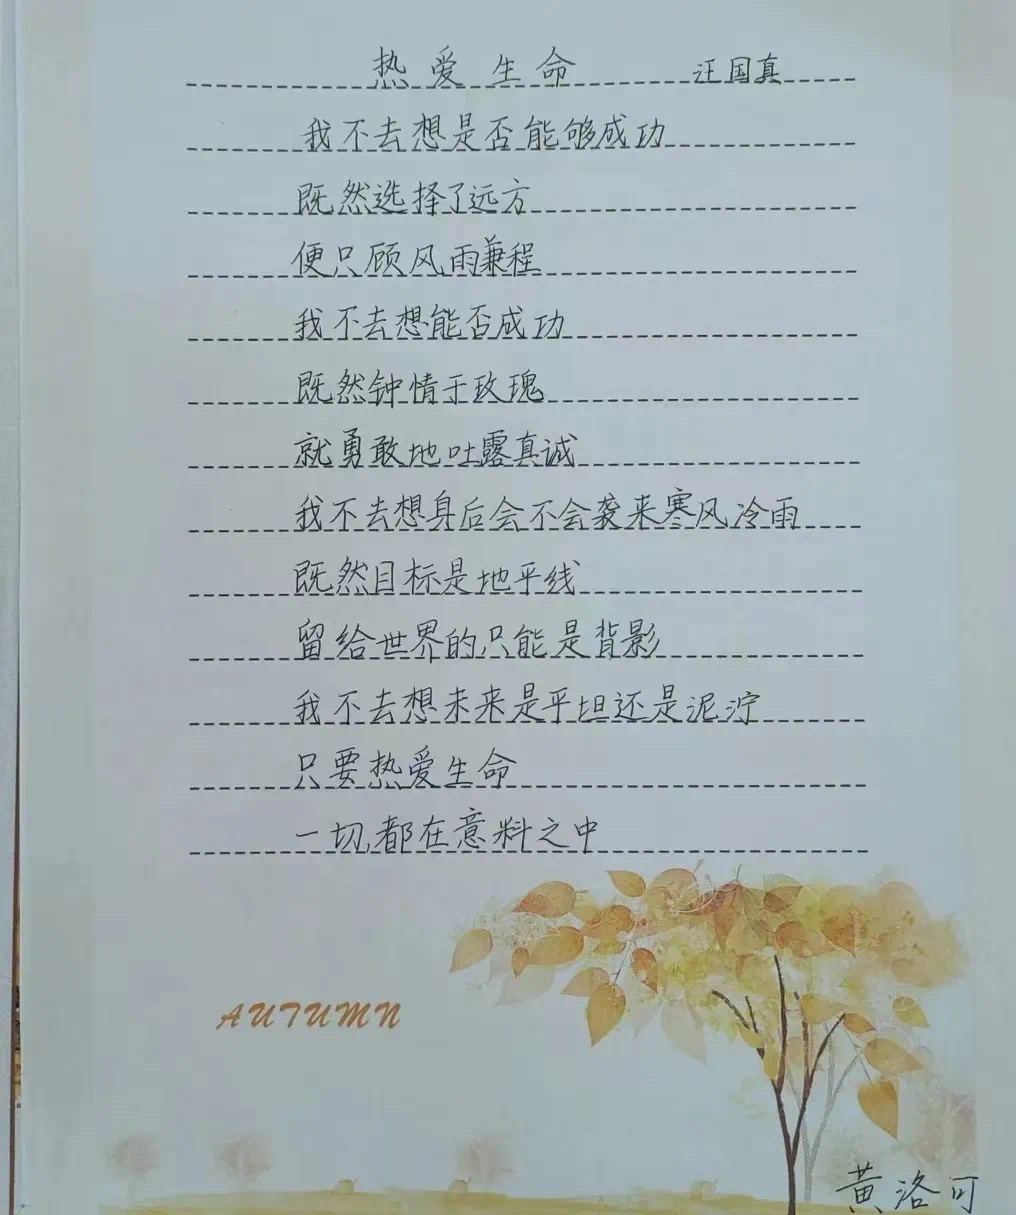 热爱生命 汪国真
我不去想是否能够成功
既然选择了远方
便只顾风雨兼程
我不去想能否成功
既然钟情于玫瑰
就勇敢地吐露真诚
我不去想身后会不会袭来寒风冷雨
既然目标是地平线
留给世界的只能是背影
我不去想未来是平坦还是泥泞
只要热爱生命
一切都在意料之中
AUTUMN
黄洛可